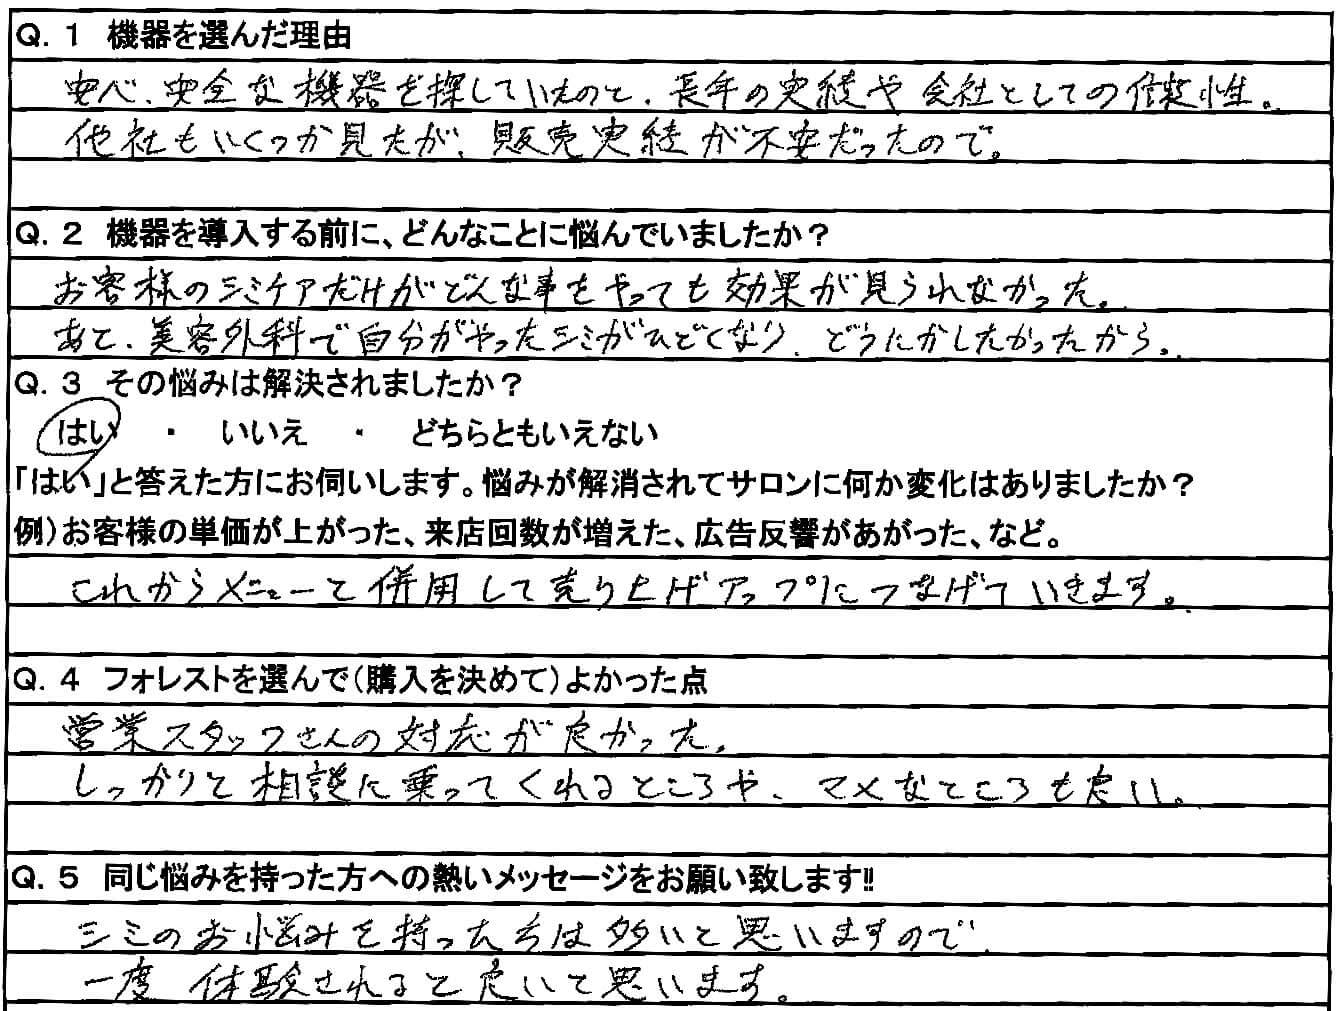 Q.1 機器を選んだ理由
安心、安全な機器を探していたのと、長年の実績や会社としての信頼性。
他社もいくつか見たが、販売実績が不安だったので。
Q.2 機器を導入する前に、どんなことに悩んでいましたか?
お客様のシミケアだけがどんな事をやっても効果が見られなかった。
あと、美容外科で自分がやったシミがひどくなり、どうにかしたかったから。
Q.3 その悩みは解決されましたか?
はい ・ いいえ ・ どちらともいえない
「はい」と答えた方にお伺いします。悩みが解消されてサロンに何か変化はありましたか?
例)お客様の単価が上がった、来店回数が増えた、広告反響があがった、など。
これからメニューと併用して売り上げアップにつなげていきます。
Q.4 フォレストを選んで(購入を決めて)よかった点
営業スタッフさんの対応が良かった。
しっかりと相談に乗ってくれるところや、マメなところも良い。
Q.5 同じ悩みを持った方への熱いメッセージをお願い致します!!
シミのお悩みを持った方は多いと思いますので、
一度 体験されると良いと思います。